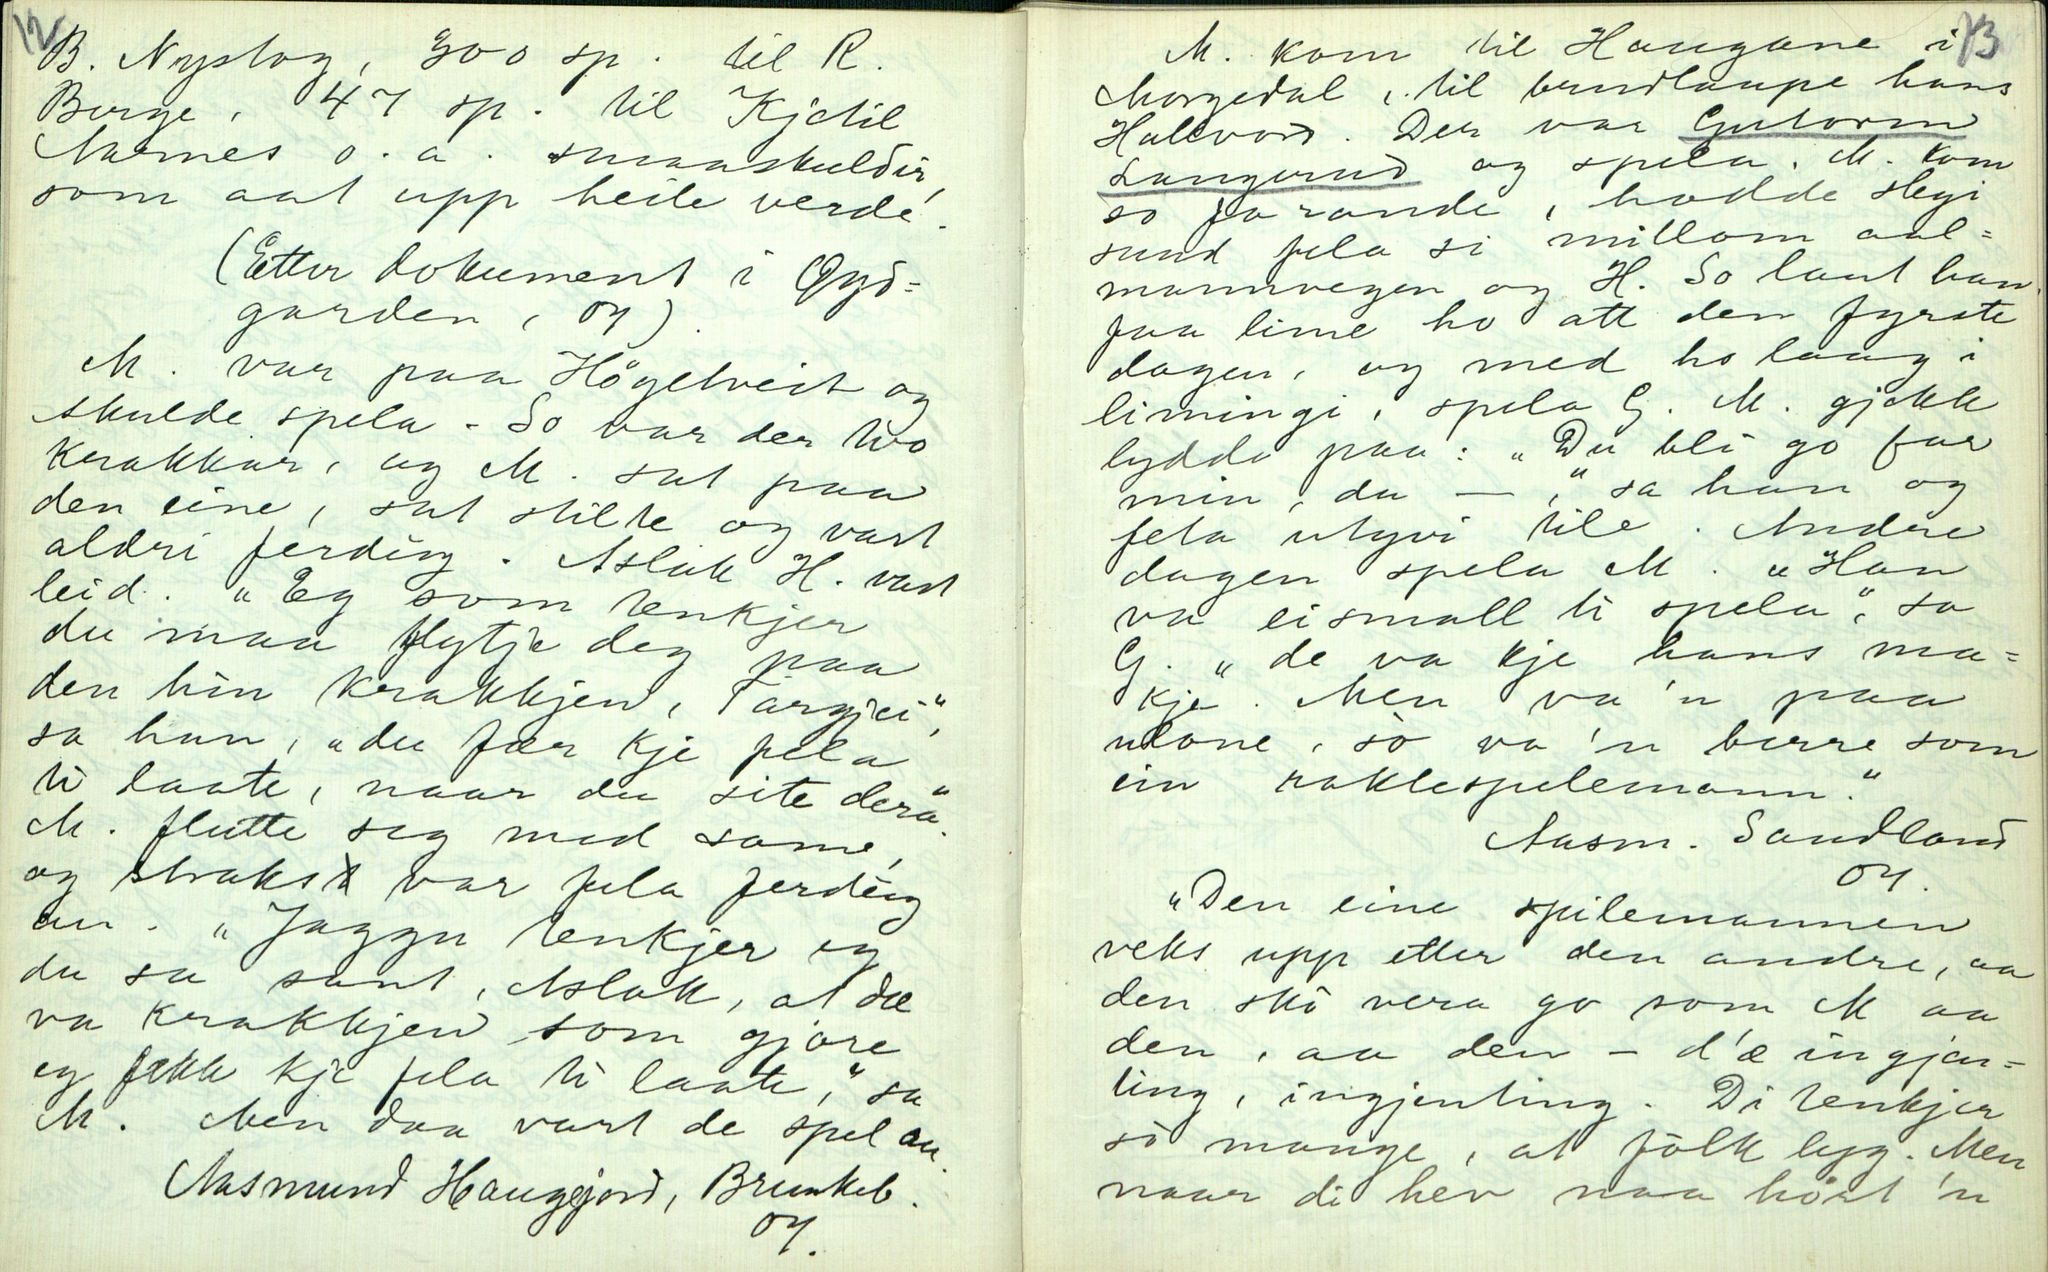 12
B. Nystog, 300 sp. til R.
Berge, 47 sp. til Kjetil
Aarnes o.a. smaaskuldir,
som aat upp heile verde.
(Etter dokument i Øyd=
garden, 07)
M. var paa Högetveit og
skulde spela. So var der two
krakkar, og M. sat paa
den eine, sat stilte og vart
aldri ferdig. Aslak H. vart
leid. "Eg som tenkjer
du maa flytje deg paa
den hin krakkjen, Targjei",
sa han, "du fær kje fela
ti laate, naar du site derá".
M. flutte seg med same,
og straks var fela ferdig
au. "Jaggu tenkjer eg
du sa sant, Aslak, at dæ
va krakkjen som gjore
eg fekk kje fela ti laate," sa
M. Men daa vart de spel au.
Aasmund Haugjord, Brunkeb.
07.
13
M. kom til Haugane i
Morgedal, til brudlaupe hans
Hallvord. Der var Gutorm
Langerud og spela. M. kom
so farande, hadde slegi
sund fela si millom aal=
mannvegen og H. So laut han
paa lime ho att den fyrste
dagen, og med ho laag i
limingi, spela G. M. gjekk
lydde paa: "Du bli go far
min, du —," sa han og
feta utyvi tile. Andre
dagen spela M. "Han
va eismall ti spela", sa
G. "de va kje hans ma=
kje. Men va'n paa
ulone, sò va'n berre som
ein raklespelemann."
Aasm. Sandland
07.
"Den eine spilemannen
veks upp etter den andre, aa
den ska vera go som M aa
den, aa den – d'æ ingjen=
ting, ingjenting. Di tenkjer
sò mange, at fòlk lyg. Men
naar di hev naa höirt 'n